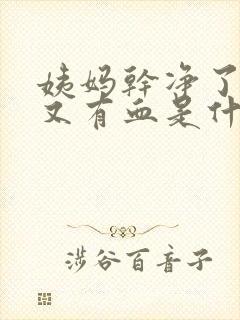 姨妈幹净了
又有血是什
涉谷百音子